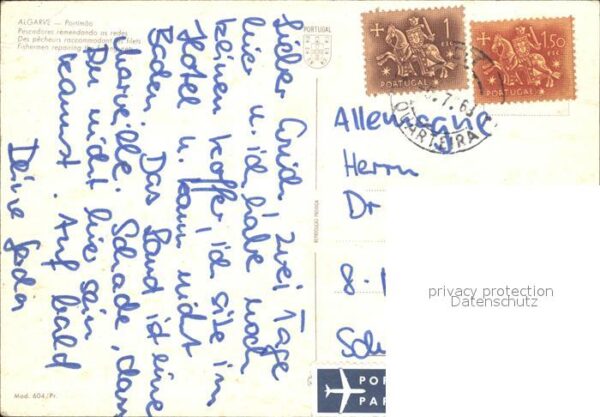 ALGARVE — Portimão
Pescadores remendando as redes
Des pêcheurs raccommodant les filets
Fishermen repairing the
PORTUGAL
1
ESC
PORTUGAL
1$50
ESC
PORTUGAL
7.6
QUARTEIRA
Lieber
zwei Tage
hier u. ich habe noch
keinen Koffer, ich sitze im
Hotel u. kann nicht
Baden. Das Land ist eine
Marveille. Schade, dass
Du nicht hier sein
kannst. Auf bald
Deine
Allemagne
Herrn
Dr
8-
Sch
REPRODUÇÃO PROIBIDA
privacy protection
Datenschutz
Mod. 604/Pr.
POR
PAR